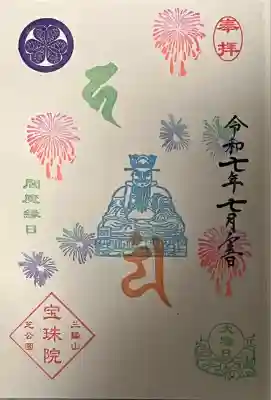 奉拝
令和七年七月
閻魔縁日
三縁山
宝珠院
芝公園